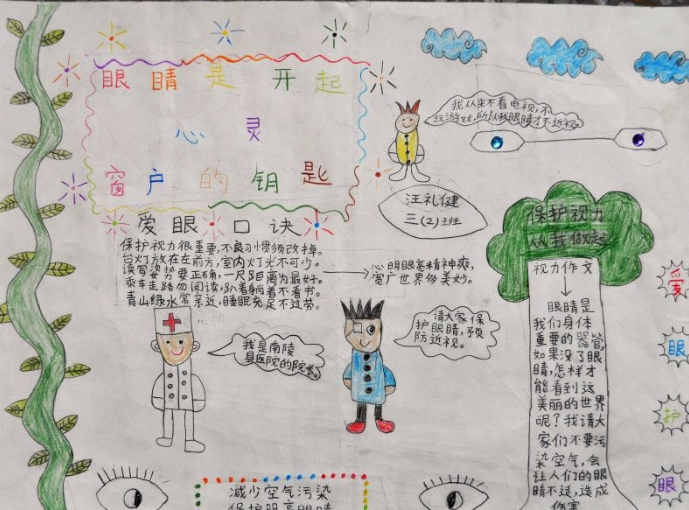 眼睛是开起
心灵
窗户的钥匙
我从来不看电视,不
玩游戏,所以我眼睛才不近视。
汪礼健
三(2)班
爱眼口诀
保护视力很重要,不良习惯须改掉。
台灯放在左前方,室内灯光不可少。
读写姿势要正确,一尺距离为最好。
乘车走路勿阅读,趴着躺着不看书。
青山绿水常亲近,睡眠充足不过劳。
心明眼亮精神爽,
宽广世界多美妙。
我是南陵
县医院的院长。
请大家保
护眼睛,预
防近视。
保护视力
从我做起
视力作文
眼睛是
我们身体
重要的器官,
如果没了眼
睛,怎样才
能看到这
美丽的世界
呢?我请大
家们不要污
染空气,会
让人们的眼
睛不适,造成
伤害
爱
眼
护
眼
减少空气污染
保护明亮眼睛